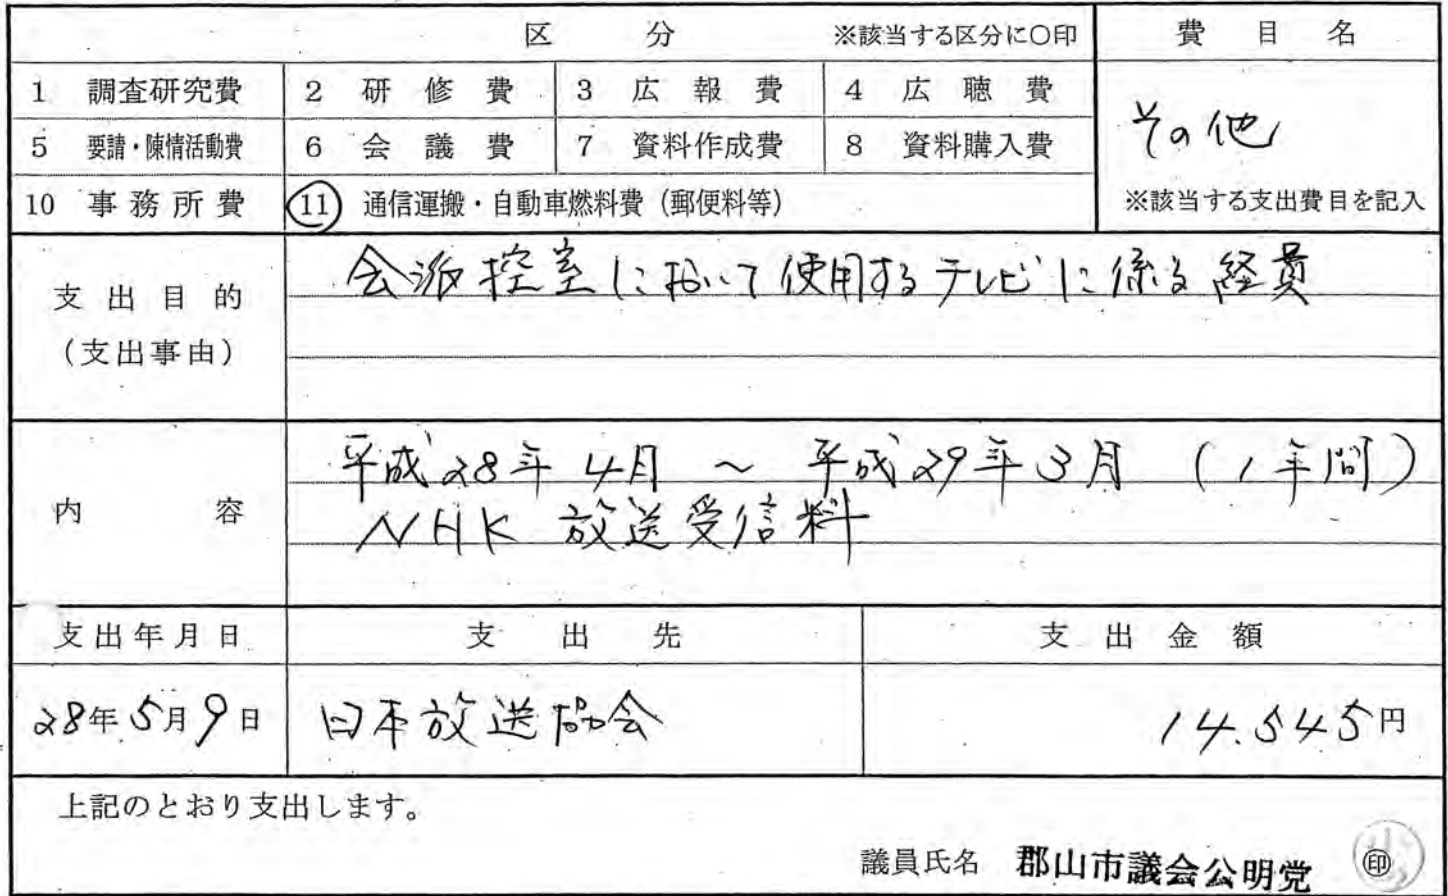 区 分 ※該当する区分に○印 費 目 名
1 調査研究費 2 研 修 費 3 広 報 費 4 広 聴 費
その他
5 要請・陳情活動費 6 会 議 費 7 資料作成費 8 資料購入費
10 事務所費 11 通信運搬・自動車燃料費（郵便料等） ※該当する支出費目を記入
支出目的
（支出事由）
会派控室において使用するテレビに係る経費
内 容
平成28年4月 ～ 平成29年3月 (1年間)
NHK 放送受信料
支出年月日 支 出 先 支 出 金 額
28年5月9日 日本放送協会 14.545円
上記のとおり支出します。
議員氏名 郡山市議会公明党 ㊞